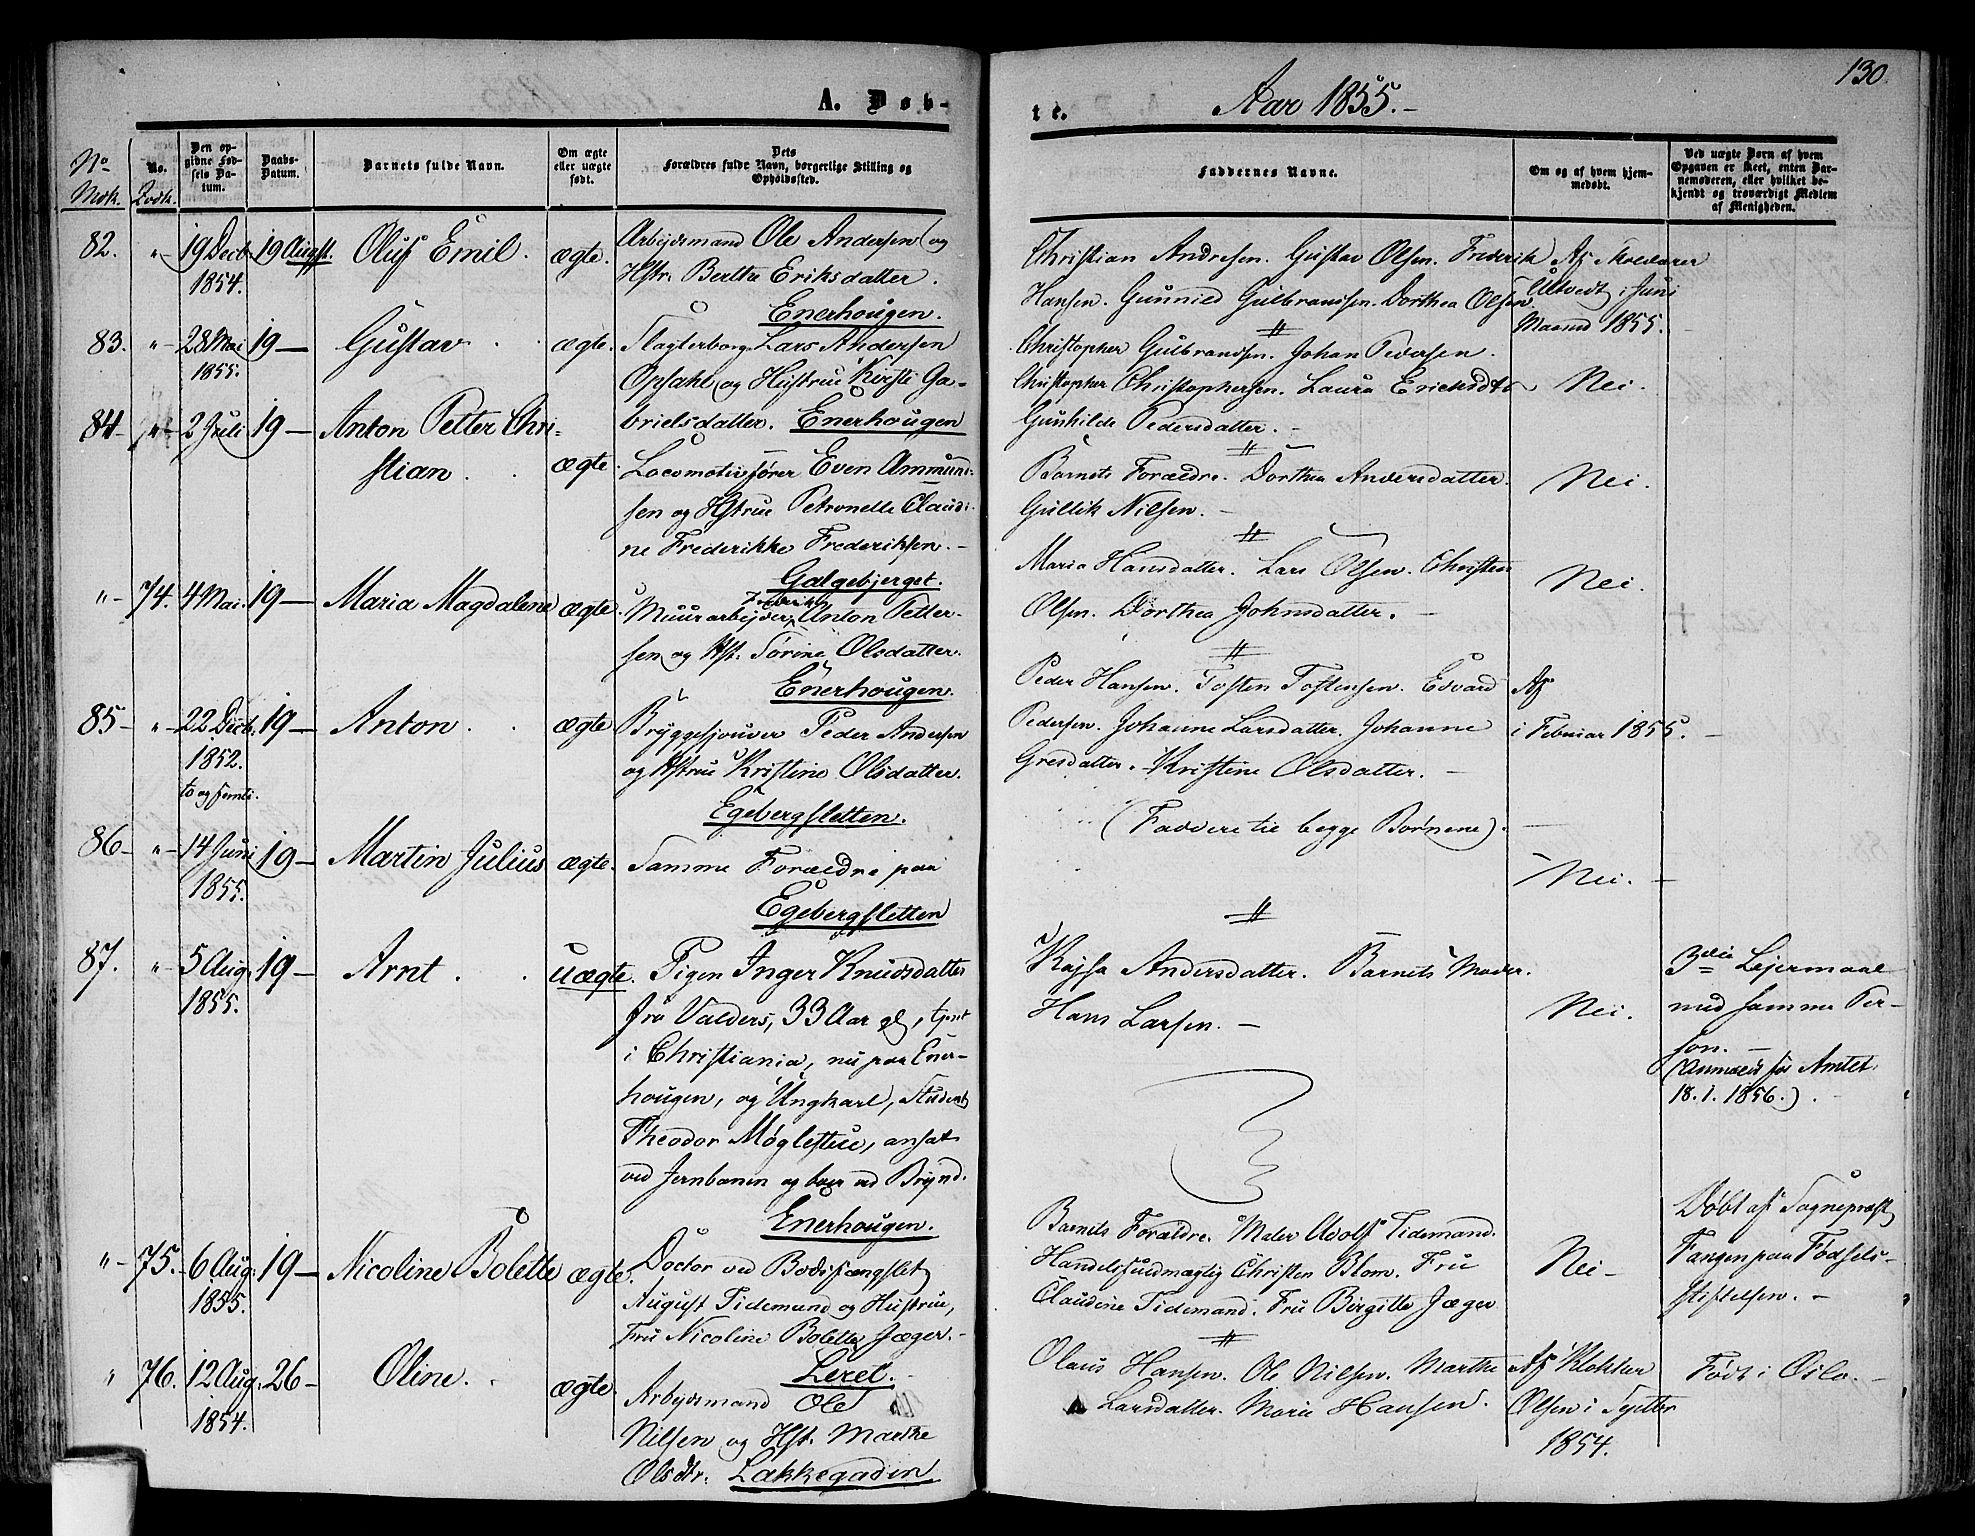 130.
A. Døb-
te.
Aar 1855.-
No
Mdk.
No.
Qvdk.
Den op-
gidne Fød-
sels Da-
tum.
Daabs-
Datum.
Barnets fulde Navn.
Om ægte
eller uægte
født.
Dets
Forældres fulde Navn, borgerlige Stilling og
Opholdssted.
Faddernes Navne.
Om og af hvem hjem-
medøbt.
Ved uægte Børn af hvem
Opgaven er skeet, enten Bar-
nemoderen, eller hvilket be-
kjendt og troværdigt Medlem
af Menigheden.
82. "- 19 Decb. 1854. 19 August. Oluf Emil. ægte.
Arbejdsmand Ole Andersen og
Hstr. Berthe Eriksdatter.
Enerhougen.
Christian Andresen. Gustav Olsen. Frederik
Hansen. Gunnild Gulbrandsen. Dorthea Olsen
Af Skolelærer
Ultvedt i Juni
Maaned 1855.
83. "- 28 Mai 1855. 19- Gustav. ægte.
Slagterborg. Lars Andersen
Opsahl og Hustrue Kirsti Ga-
brielsdatter. Enerhougen
Christopher Gulbrandsen. Johan Pedersen.
Christopher Christophersen. Laura Ericksdtr
Gunhilde Pedersdatter.-
Nei.
84- "- 2 Juli 19- Anton Petter Chri-
stian. ægte.
Locomotivfører Even Ammund-
sen og Hstrue Petronelle Claudi-
ne Frederikke Frederiksen.-
Galgebjerget.
Barnets Forældre. Dorthea Andersdatter.
Gullik Nilsen.-
Nei.
"- 74. 4 Mai. 19- Maria Magdalene ægte.
Muurarbejder, Anton Petter-
sen og Hst. Sørine Olsdatter.
Enerhougen.
Maria Hansdatter. Lars Olsen. Christen
Olsen. Dorthea Johnsdatter.-
Nei.
85- "- 22 Decb. 1852. to og femti. 19- Anton. ægte
Bryggesjouer Peder Andersen
og Hstrue Kristine Olsdatter.
Egebergsletten.
Peder Hansen. Tosten Tostensen. Edvard
Pedersen. Johanne Larsdatter. Johanne
Gresdatter. Kristene Olsdatter.-
(Faddere til begge Børnene).
Af
i Februar 1855.
86- "- 14 Juni 1855. 19- Martin Julius ægte.
Samme Forældre paa
Egebergsletten
Nei.-
87. "- 5 Aug. 1855. 19- Arnt. uægte.
Pigen Inger Knudsdatter
fra Valders, 33 Aar gl, tjent
i Christiania, nu paa Ener-
hougen, og Ungkarl, Student
Theodor Møglestue, ansat
ved Jernbanen og boer ved Brynd.
Enerhougen.
Kajsa Andersdatter. Barnets Moder.
Hans Larsen.-
Nei.
3die Lejermaal
med samme Per-
son.-
(Anmeldt for Amtet
18.1.1856.).
"- 75. 6 Aug. 1855. 19- Nicoline Bolette ægte.
Doctor ved Bodsfængslet
August Tidemand og Hustrue,
Fru Nicoline Bolette Jæger.-
Leret.
Barnets Forældre. Maler Adolf Tidemand.
Handelsfuldmægtig Christen Blom. Fru
Claudine Tidemand. Fru Birgitte Jæger
Nei-
Døbt af Sognepræst
Fangen paa Fødsels-
stiftelsen.-
" 76. 12 Aug. 1854. 26- Oline. ægte.
Arbejdsmand Ole
Nilsen og Hst. Marthe
Olsdtr. Lakkegaden
Olaus Hansen. Ole Nilsen. Marthe
Larsdatter. Marie Hansen.
Af Klokker
Olsen i Septbr
1854.
Født i Oslo.-